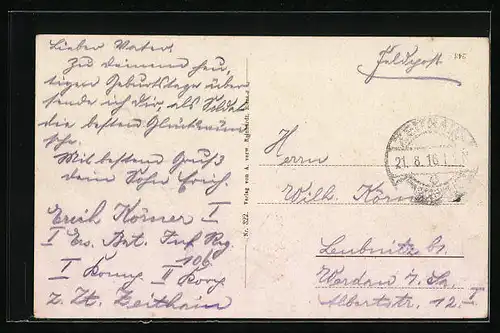 Lieber Vater!
Zu deinem heu-
tigen Geburtstage über-
sende ich dir, als Soldat
die besten Glückwün-
sche.
Mit bestem Gruß
dein Sohn Erich.
Erich Körner I
I Ers. Bat. Inf. Reg.
106
I Komp. II Korp.
z. Zt. Zeithain
Nr. 322. Verlag von A. verw.
Feldpost
241
ZEITHAIN
21. 8. 16. 1
Herrn
Wilh. Körner
Leubnitz b.
Werdau i. Sa.
Albertstr. 12. I